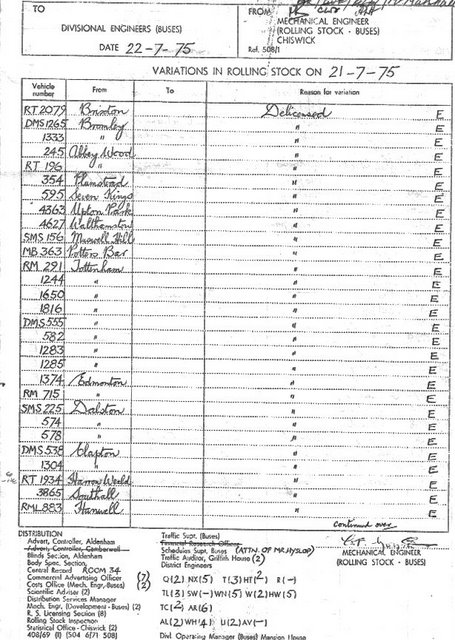 TO
DIVISIONAL ENGINEERS (BUSES)
DATE 22-7-75
FROM
MECHANICAL ENGINEER
(ROLLING STOCK - BUSES)
CHISWICK
Ref. 508/1
VARIATIONS IN ROLLING STOCK ON 21-7-75
Vehicle number From To Reason for variation
RT 2079 Brixton Delicensed E
DMS 1265 Bromley " E
1333 " " E
245 Abbey Wood " E
RT 196 " " E
354 Plumstead " E
595 Seven Kings " E
4363 Upton Park " E
4627 Walthamstow " E
SMS 156 Muswell Hill " E
MB 363 Potters Bar " E
RM 291 Tottenham " E
1244 " " E
1650 " " E
1816 " " E
DMS 555 " " E
582 " " E
1283 " " E
1285 " " E
1374 Edmonton " E
RM 715 " " E
SMS 225 Dalston " E
574 " " E
578 " " E
DMS 538 Clapton " E
1304 " " E
RT 1934 Harrow Weald " E
3865 Southall " E
RML 883 Hanwell " E
continued over
DISTRIBUTION
Advert, Controller, Aldenham
Advert, Controller, Camberwell
Blinds Section, Aldenham
Body Spec, Section,
Central Record ROOM 34
Commercial Advertising Officer (7)
Costs Office (Mech. Engr. Buses) (2)
Scientific Adviser (2)
Distribution Services Manager
Mech. Engr. (Development - Buses) (2)
R. S. Licensing Section (8)
Rolling Stock Inspection
Statistical Office - Chiswick (2)
408/69 (1) (504 6/71 508)
Traffic Supt. (Buses)
Financial Research Officer
Schedules Supt. Buses (ATTN. OF MR. HYSLOP)
Traffic Auditor, Griffith House (2)
District Engineers
Q(2) NX(5) T(3) HT(2) R(-)
TL(3) SW(-) WN(5) W(2) HW(5)
TC(2) AR(6)
AL(2) WH(4) U(2) AV(-)
Divl. Operating Manager (Buses) Mansion House
MECHANICAL ENGINEER
(ROLLING STOCK - BUSES)